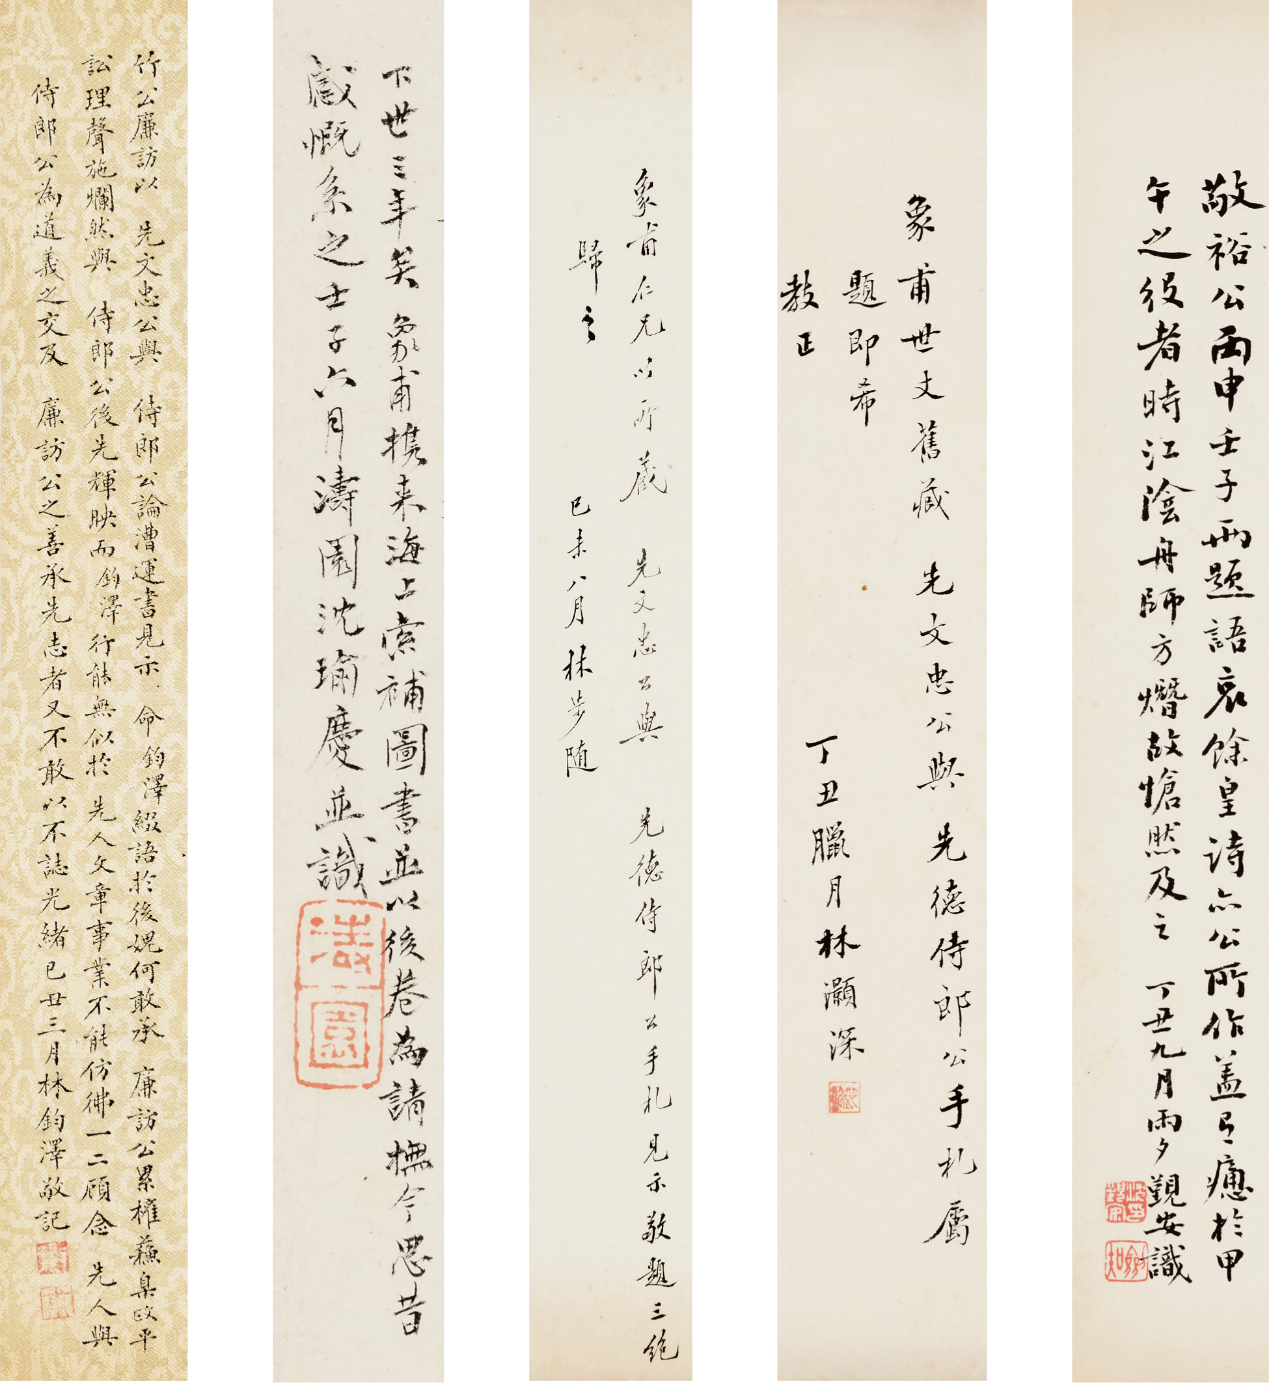 敬裕公丙申壬子兩題語哀餘皇詩亦公所作蓋有瘱於甲
午之役者時江陰舟師方熸故愴然及之　丁丑九月雨夕觐安識
象甫世丈舊藏　先文忠公與　先德侍郎公手札屬
題即希
教正
丁丑臘月林灝深
象甫仁兄以所藏　先文忠公與　先德侍郎公手札見示敬題三絶
歸之
己未八月林步随
下世三年矣　象甫携来海上索補圖書並以後卷為請撫今思昔
感慨系之壬子六月濤園沈瑜慶並識
濤園
竹公廉訪以　先文忠公與　侍郎公論漕運書見示命鈞澤綴語於後媿何敢承　廉訪公累權蘇臬政平
訟理聲施爛然與　侍郎公後先輝映而鈞澤行能無似於先人文章事業不能仿彿一二顧念　先人與
侍郎公為道義之交及　廉訪公之善承先志者又不敢以不誌光緒己丑三月林鈞澤敬記